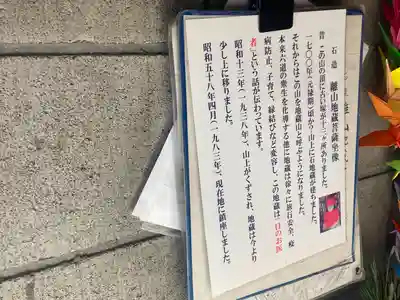 石造 離山地蔵菩薩坐像
昔、この山の頂に古い塚が十三ヶ所ありました。
一七〇〇年(元禄期)頃か?山上に石地蔵が建ちました。
それからはこの山を地蔵山と呼ぶようになりました。
本来六道の衆生を化導する他に地蔵は徐々に旅行安全、疫
病防止、子育て、縁結びなど変容し、この地蔵は「目のお医
者」という話が伝わっています。
昭和十三年(一九三八年)、山上がくずされ、地蔵は今より
少し上に移りました。
昭和五十八年四月(一九八三年)、現在地に鎮座しました。